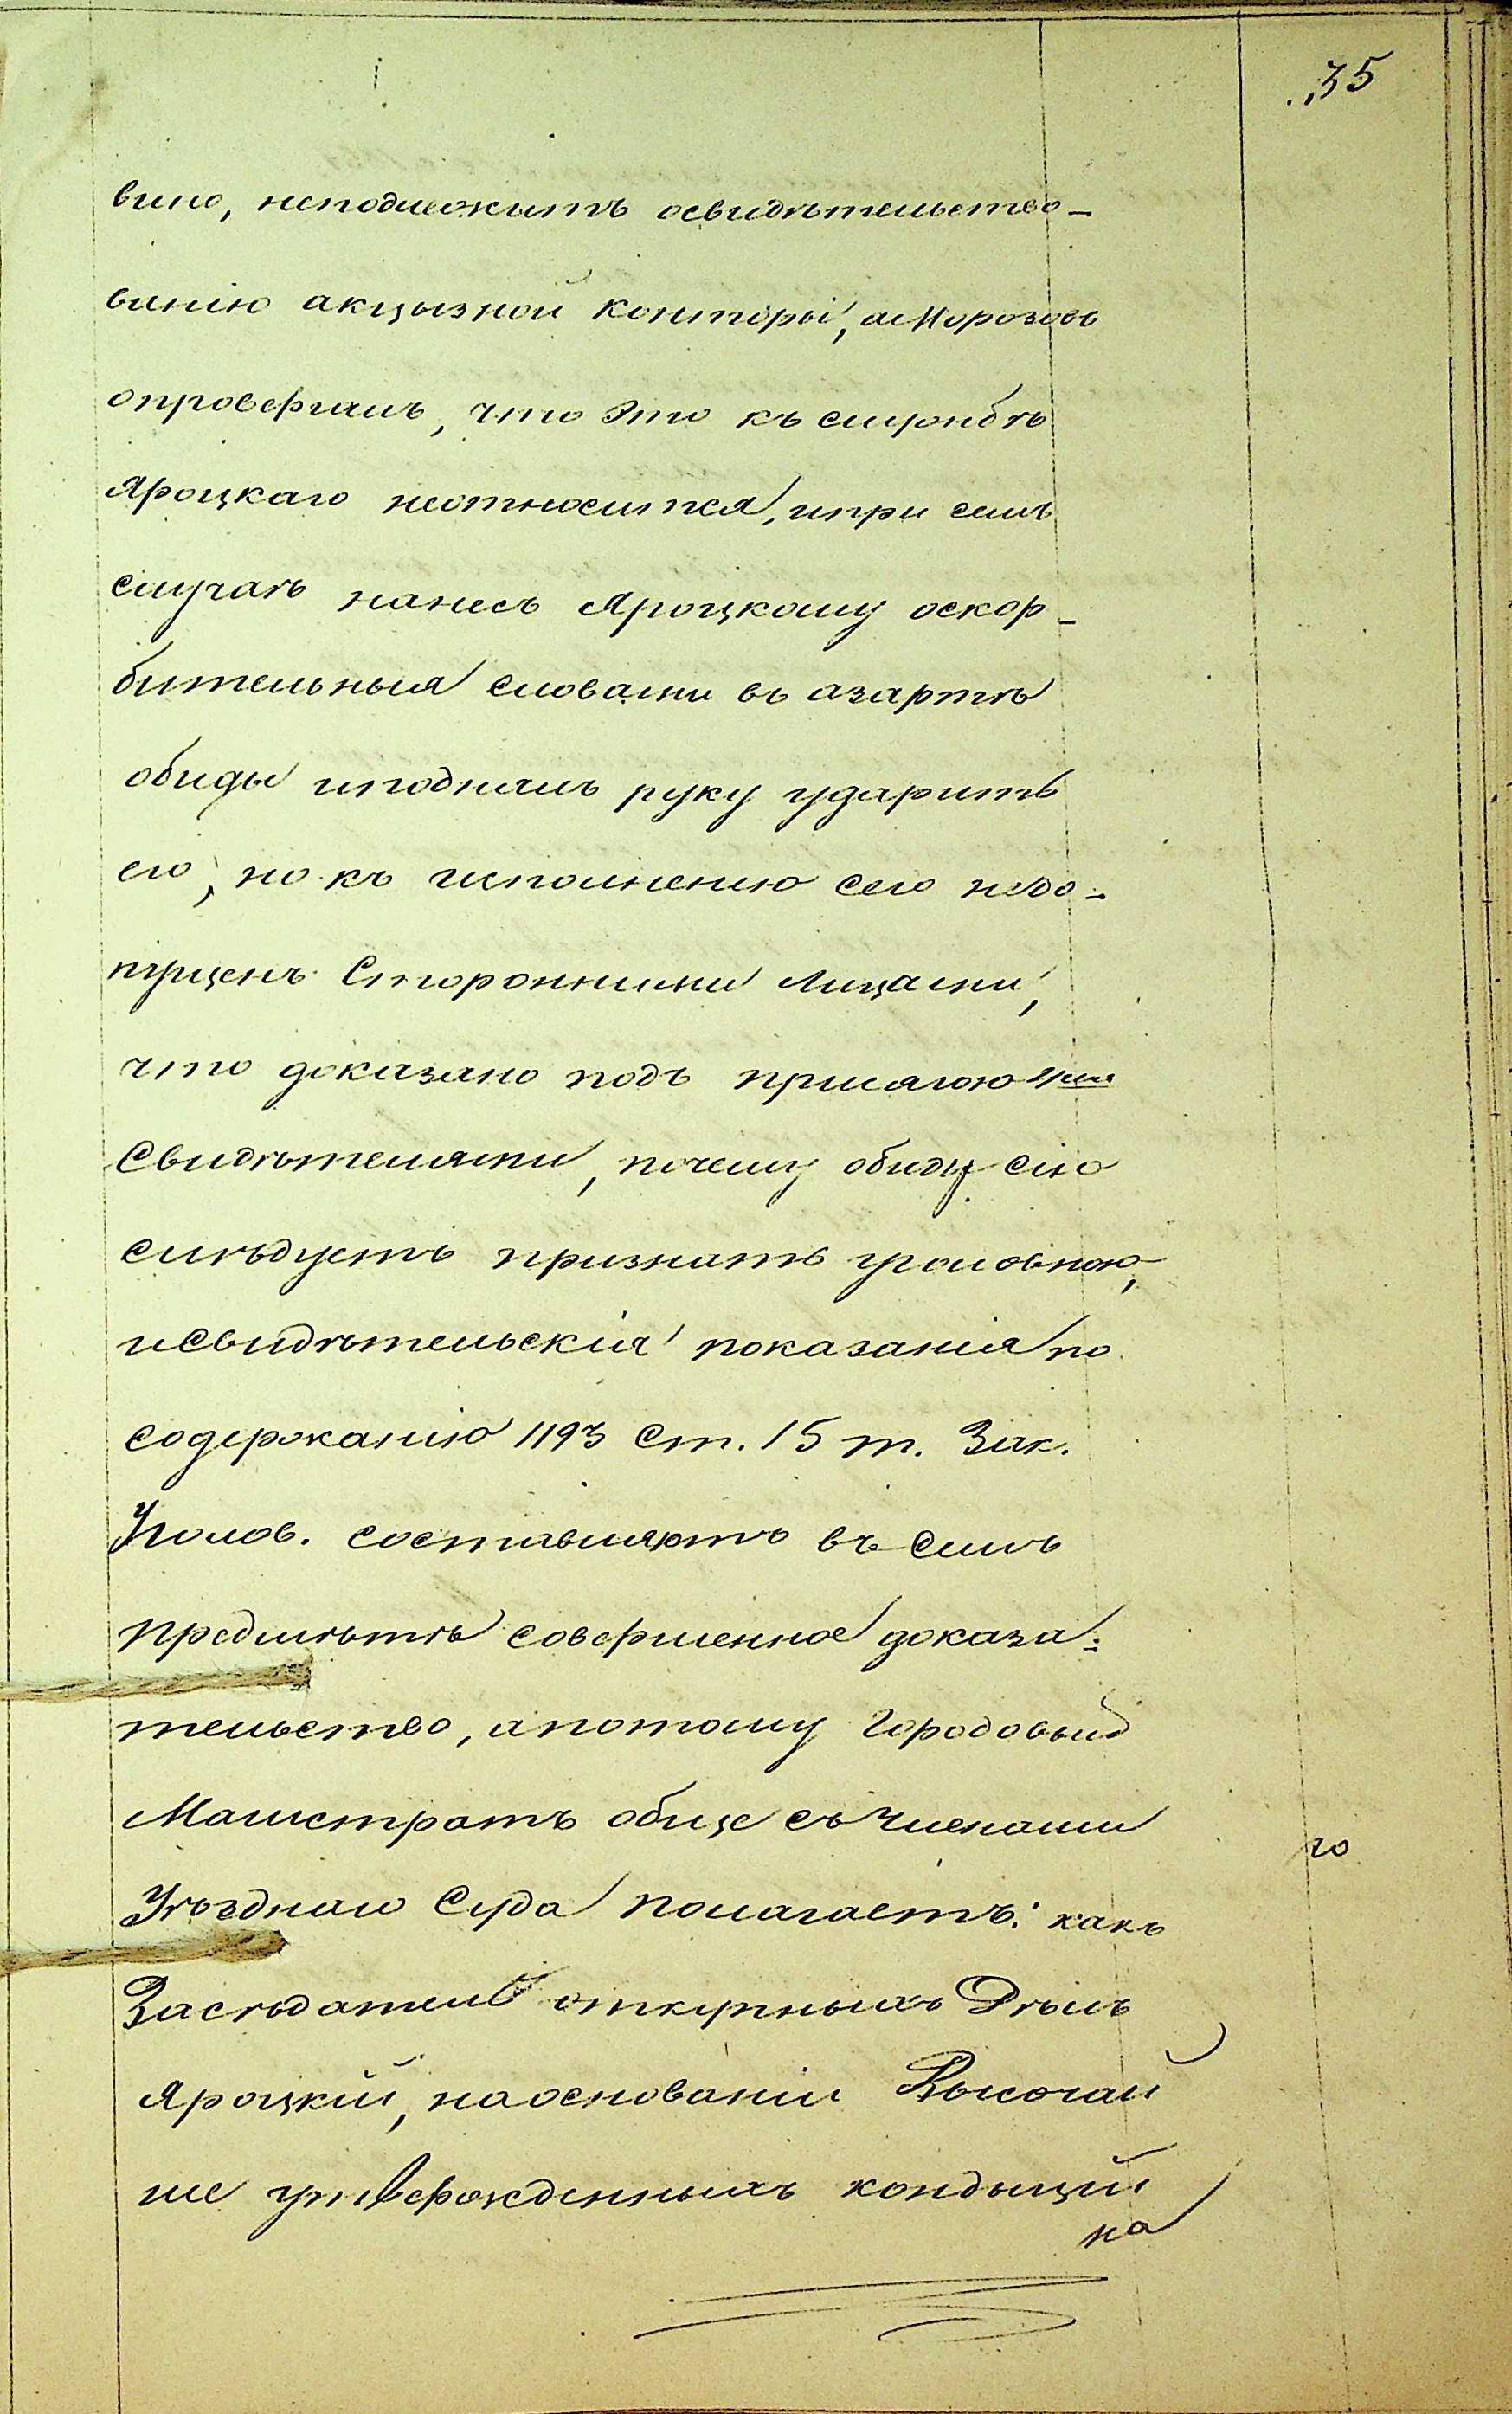 35
вино, неподлежитъ освидѣтельство-
ванію акцызной конторы, а Морозовъ
опровергалъ, что это къ служ­бѣ
Яроцкаго неотносится, и при семъ
случаѣ нанесъ Яроцкому оскор-
бительныя словами въ азартѣ
обиды и поднялъ руку ударить
его, но къ исполненію сего недо-
пущенъ Сторонними Лицами,
что доказано подъ присягою 4мя
Свидѣтелями, почему обиду сію
слѣдуетъ признать уголовною,
и свидѣтельскія показанія по
содержанію 1193 Ст. 15 т. Зак.
Уголов. составляютъ въ семъ
предметѣ совершенное доказа-
тельство, а потому Городовый
Магистратъ обще съ членами
Уѣзднаго Суда полагаетъ: какъ
Засѣдатель откупныхъ Дѣлъ
Яроцкій, на основаніи Высочай
ше утвержденныхъ кондицій
на